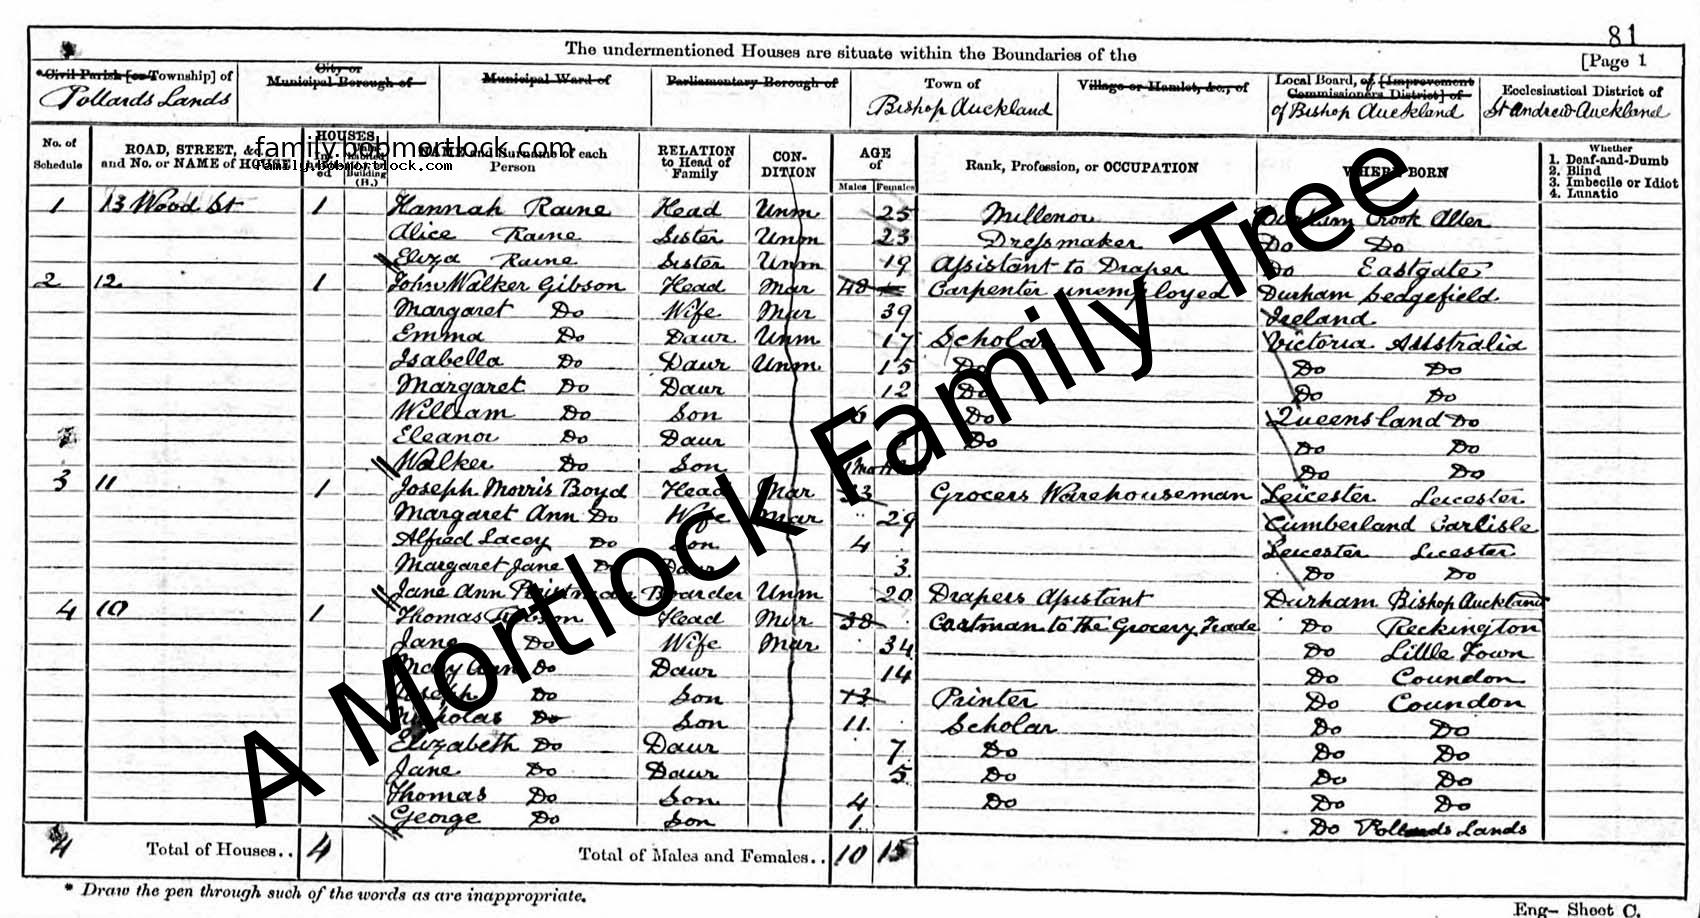 81
The undermentioned Houses are situate within the Boundaries of the
[Page 1
Civil Parish [or Township] of
City or Municipal Borough of
Municipal Ward of
Parliamentary Borough of
Town of
Village or Hamlet, &c., of
Local Board, or [Improvement Commissioners District] of
Ecclesiastical District of
Pollards Lands
Bishop Auckland
of Bishop Auckland
St Andrew Auckland
family.bobmortlock.com
family.bobmortlock.com
No. of Schedule
ROAD, STREET, &c. and No. or NAME of HOUSE
HOUSES
Building (B.)
NAME and Surname of each Person
RELATION to Head of Family
CON-DITION
AGE of
Males
Females
Rank, Profession, or OCCUPATION
WHERE BORN
Whether
1. Deaf-and-Dumb
2. Blind
3. Imbecile or Idiot
4. Lunatic
1 13 Wood St 1 Hannah Raine Head Unm 25 Millenor Durham Crook Aller
Alice Raine Sister Unm 23 Dressmaker Do Do
Eliza Raine Sister Unm 19 Assistant to Draper Do Eastgate
2 12 1 John Walker Gibson Head Mar 48 Carpenter unemployed Durham Sedgefield
Margaret Do Wife Mar 39 Ireland
Emma Do Daur Unm 17 Scholar Victoria Australia
Isabella Do Daur Unm 15 Do Do Do
Margaret Do Daur 12 Do Do Do
William Do Son 6 Do Queensland Do
Eleanor Do Daur Do Do Do
Walker Do Son Do Do
3 11 1 Joseph Morris Boyd Head Mar 33 Grocers Warehouseman Leicester Leicester
Margaret Ann Do Wife Mar 29 Cumberland Carlisle
Alfred Lacey Do Son 4 Leicester Licester
Margaret Jane Do Daur 3 Do Do
Jane Ann Boarder Unm 20 Drapers Assistant Durham Bishop Auckland
4 10 1 Thomas Head Mar 38 Cartman to the Grocery Trade Do Heckington
Jane Do Wife Mar 34 Do Little Town
Mary Ann Do Daur 14 Do Coundon
Joseph Do Son 13 Printer Do Coundon
Nicholas Do Son 11 Scholar Do Do
Elizabeth Do Daur 7 Do Do Do
Jane Do Daur 5 Do Do Do
Thomas Do Son 4 Do Do Do
George Do Son 1 Do Pollards Lands
4 Total of Houses.. 4 Total of Males and Females.. 10 15
* Draw the pen through such of the words as are inappropriate.
Eng- Sheet C.
A Mortlock Family Tree